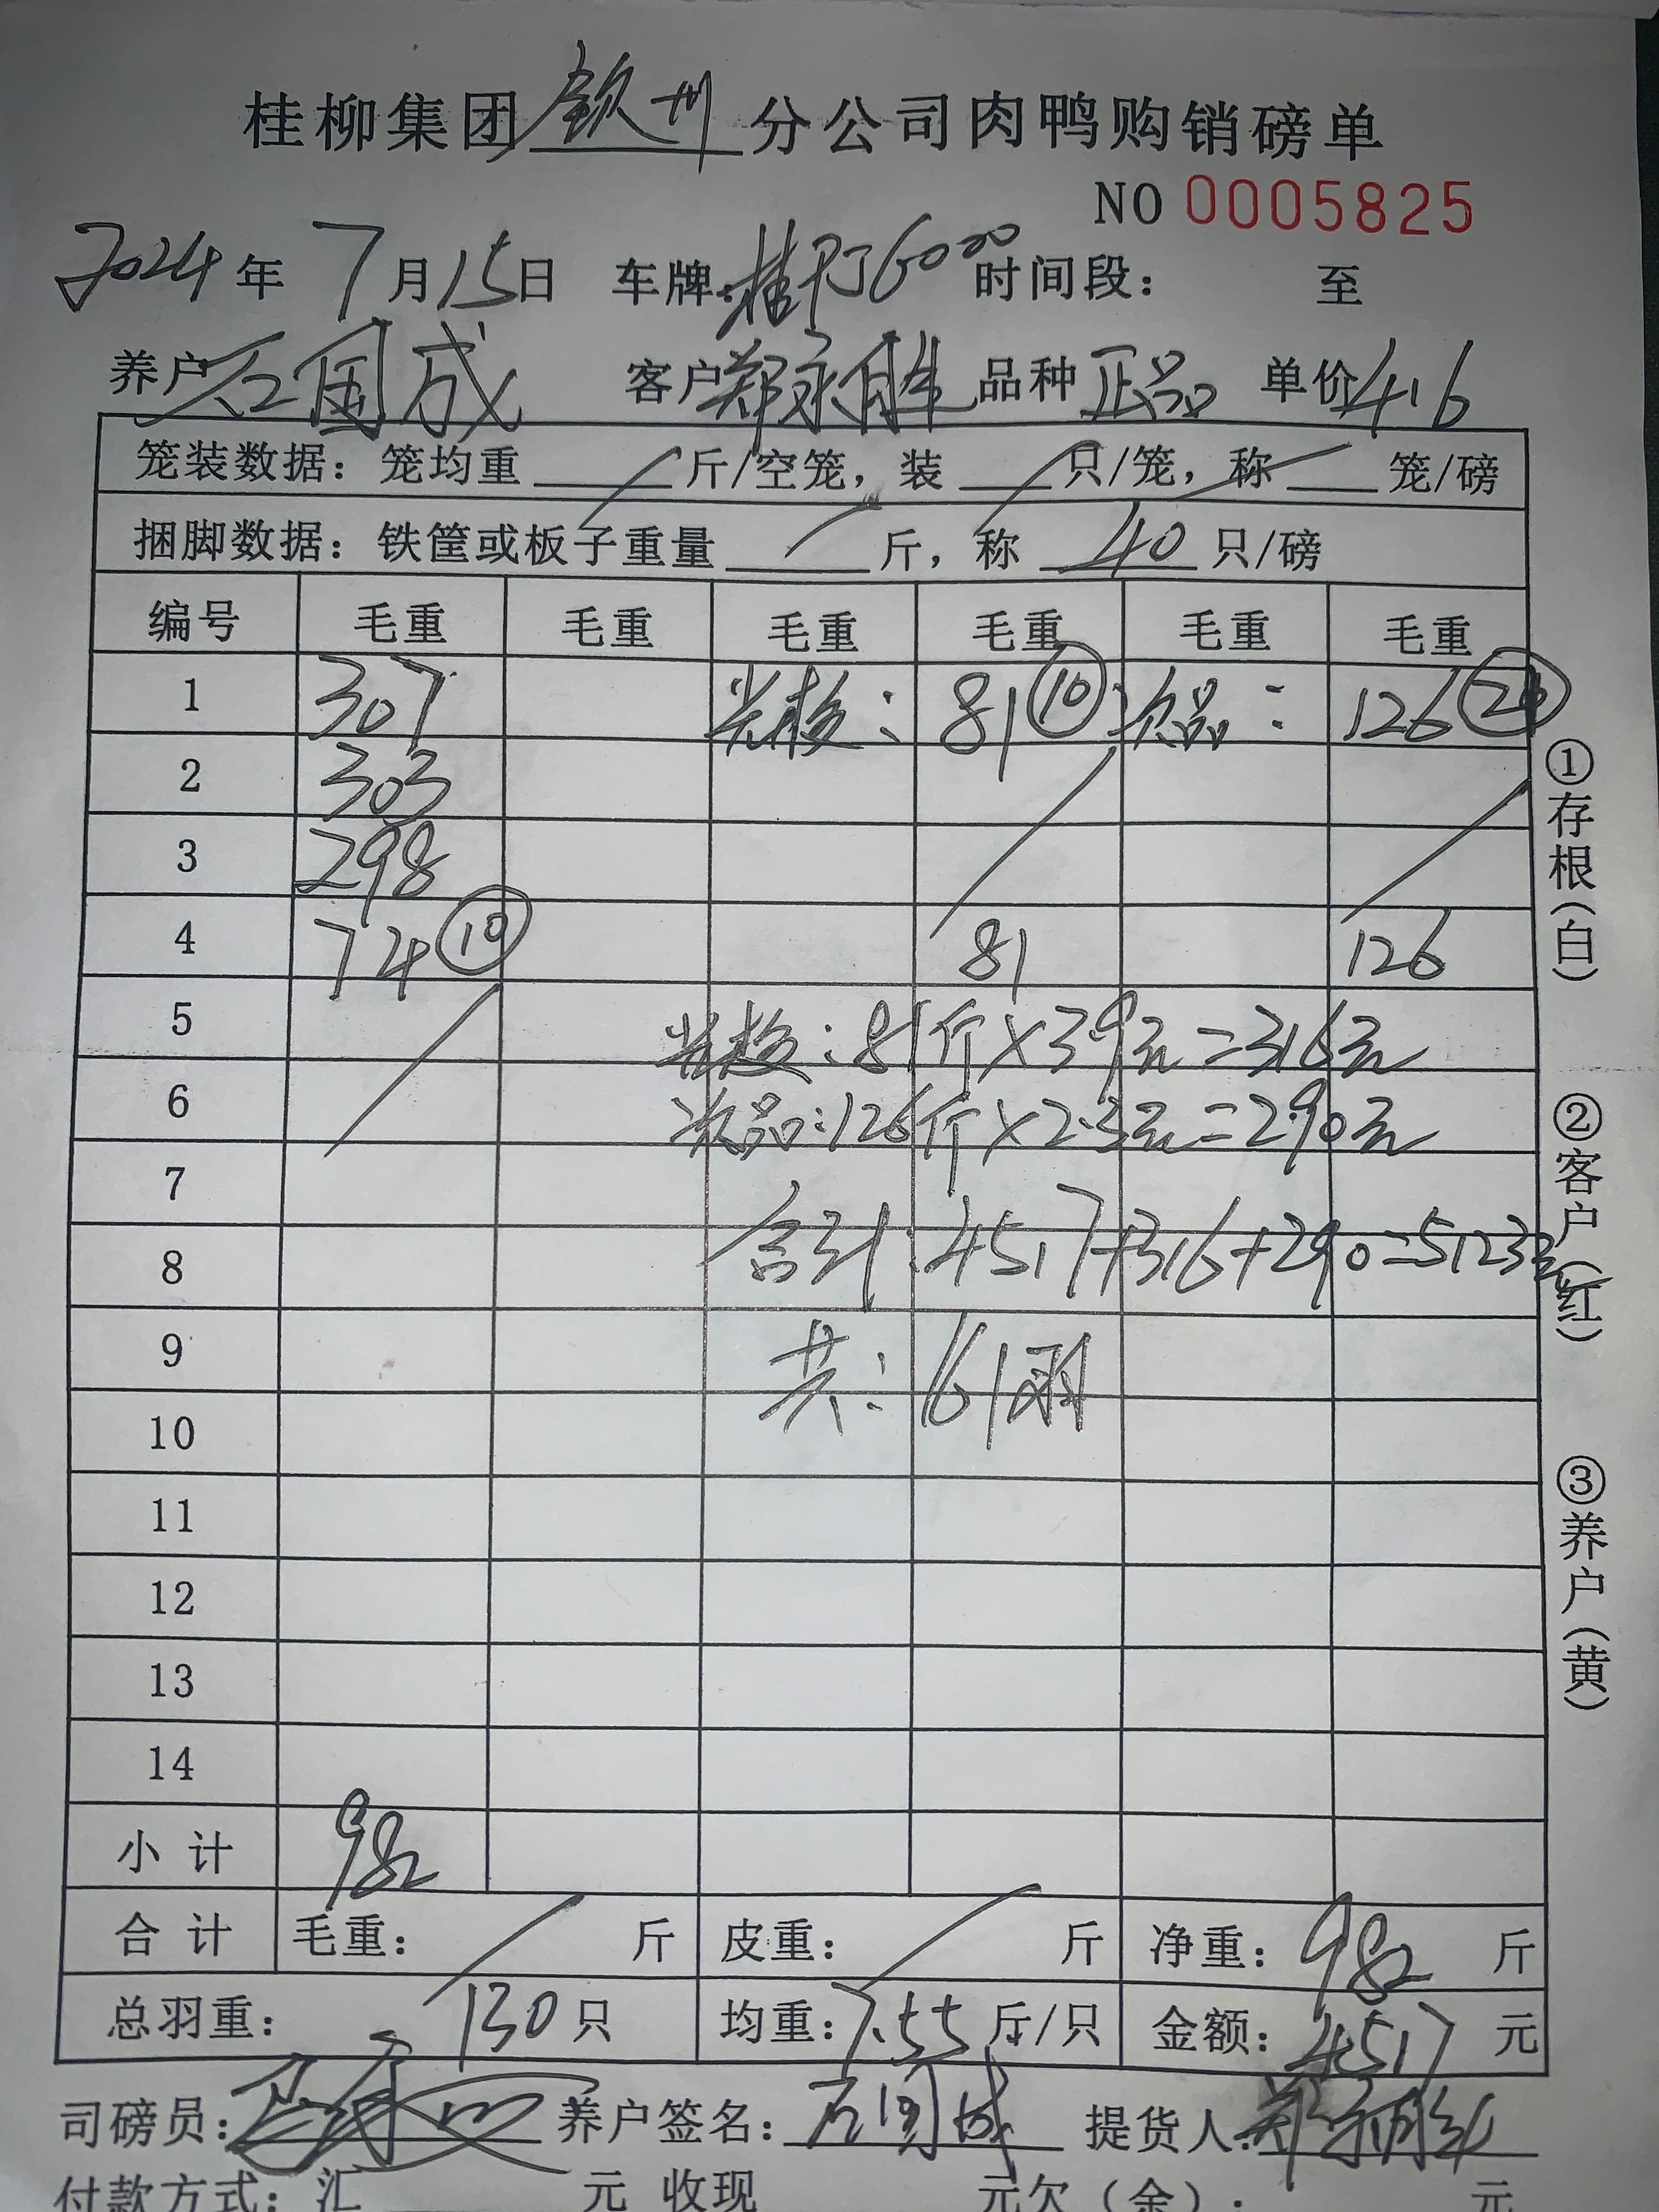 桂柳集团钦州分公司肉鸭购销磅单
NO 0005825
2024年7月15日 车牌:桂 时间段: 至
养户石国成 客户郑永胜 品种正品 单价4.6
笼装数据: 笼均重 斤/空笼, 装 只/笼, 称 笼/磅
捆脚数据: 铁筐或板子重量 斤, 称 40 只/磅
编号 毛重 毛重 毛重 毛重 毛重 毛重
1 307 : 81 ⑩ 次品: 126
2 303
3 298
4 74 ⑩ 81 126
5 : 81斤×3.9元=316元
6 次品:126斤×2.3元=290元
7
8 合计:4517+316+290=5123元
9 共:161羽
10
11
12
13
14
小计 982
合计 毛重: 斤 皮重: 斤 净重: 982 斤
总羽重: 130只 均重:7.55斤/只 金额:4517 元
司磅员: 养户签名:石国成 提货人:
付款方式: 汇 元 收现 元欠(余): 元
①存根(白)
②客户(红)
③养户(黄)